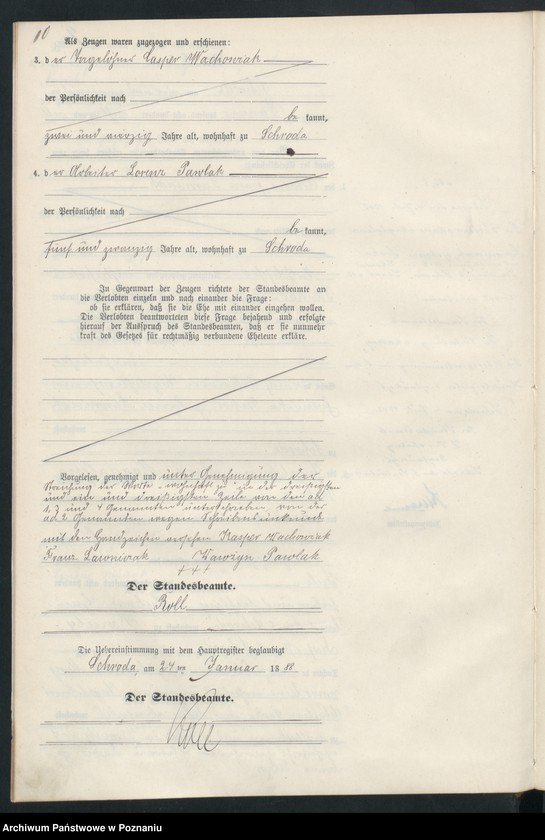 10
Als Zeugen waren zugezogen und erschienen:
3. der Tagelöhner Casper Wachowiak
der Persönlichkeit nach
be kannt,
zwei und vierzig Jahre alt, wohnhaft zu Schroda
4. der Arbeiter Lorenz Pawlak
der Persönlichkeit nach
be kannt,
fünf und zwanzig Jahre alt, wohnhaft zu Schroda
In Gegenwart der Zeugen richtete der Standesbeamte an
die Verlobten einzeln und nach einander die Frage:
ob sie erklären, daß sie die Ehe mit einander eingehen wollen.
Die Verlobten beantworteten diese Frage bejahend und erfolgte
hierauf der Ausspruch des Standesbeamten, daß er sie nunmehr
kraft des Gesetzes für rechtmäßig verbundene Eheleute erkläre.
Vorgelesen, genehmigt und unter Genehmigung der
Streichung der Worte wohnhaft zu in der dreißigsten
und ein und dreißigsten Zeile von dem ad
1, 3 und 4 Genannten unterschrieben, von der
ad 2 Genannten wegen Schreibensunkunde
mit dem Handzeichen versehen Kasper Wachowiak
Franz Lawniczak Wawrzyn Pawlak
+++
Der Standesbeamte.
Roll
Die Uebereinstimmung mit dem Hauptregister beglaubigt
Schroda, am 24 ten Januar 1888
Der Standesbeamte.
Roll
Archiwum Państwowe w Poznaniu